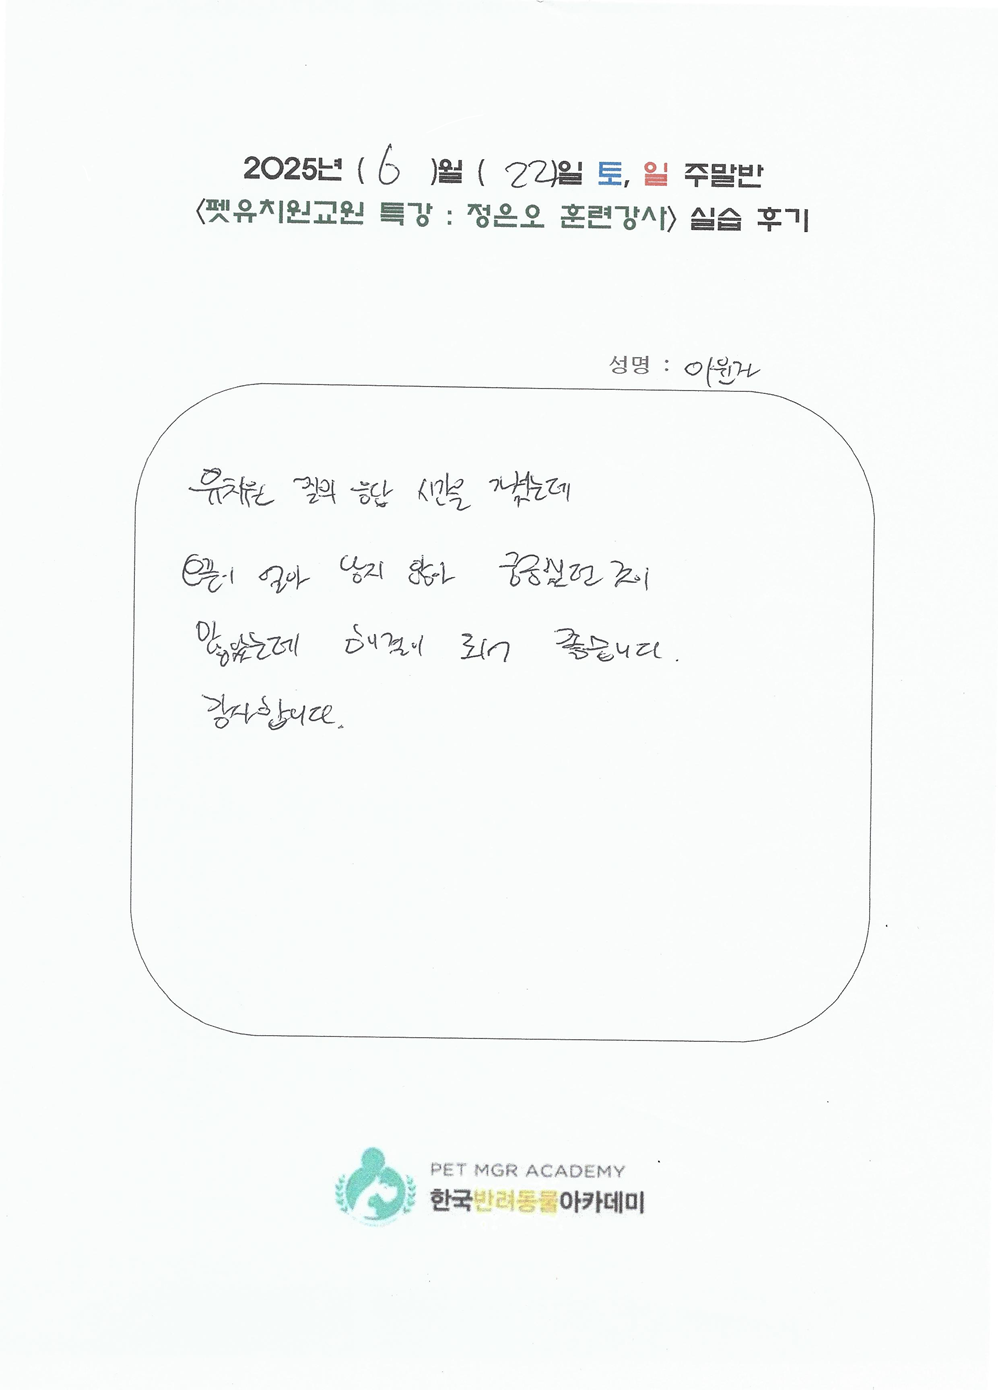 2025년 ( 6 )월 ( 22)일 토, 일 주말반
<펫유치원교원 특강 : 정은오 훈련강사> 실습 후기
성명 : 이윤지
유치원 질의 응답 시간을 가졌는데
오픈이 얼마 남지 않아 궁금했던 것이
많았는데 해결이 되어 좋습니다.
감사합니다.
PET MGR ACADEMY
한국반려동물아카데미